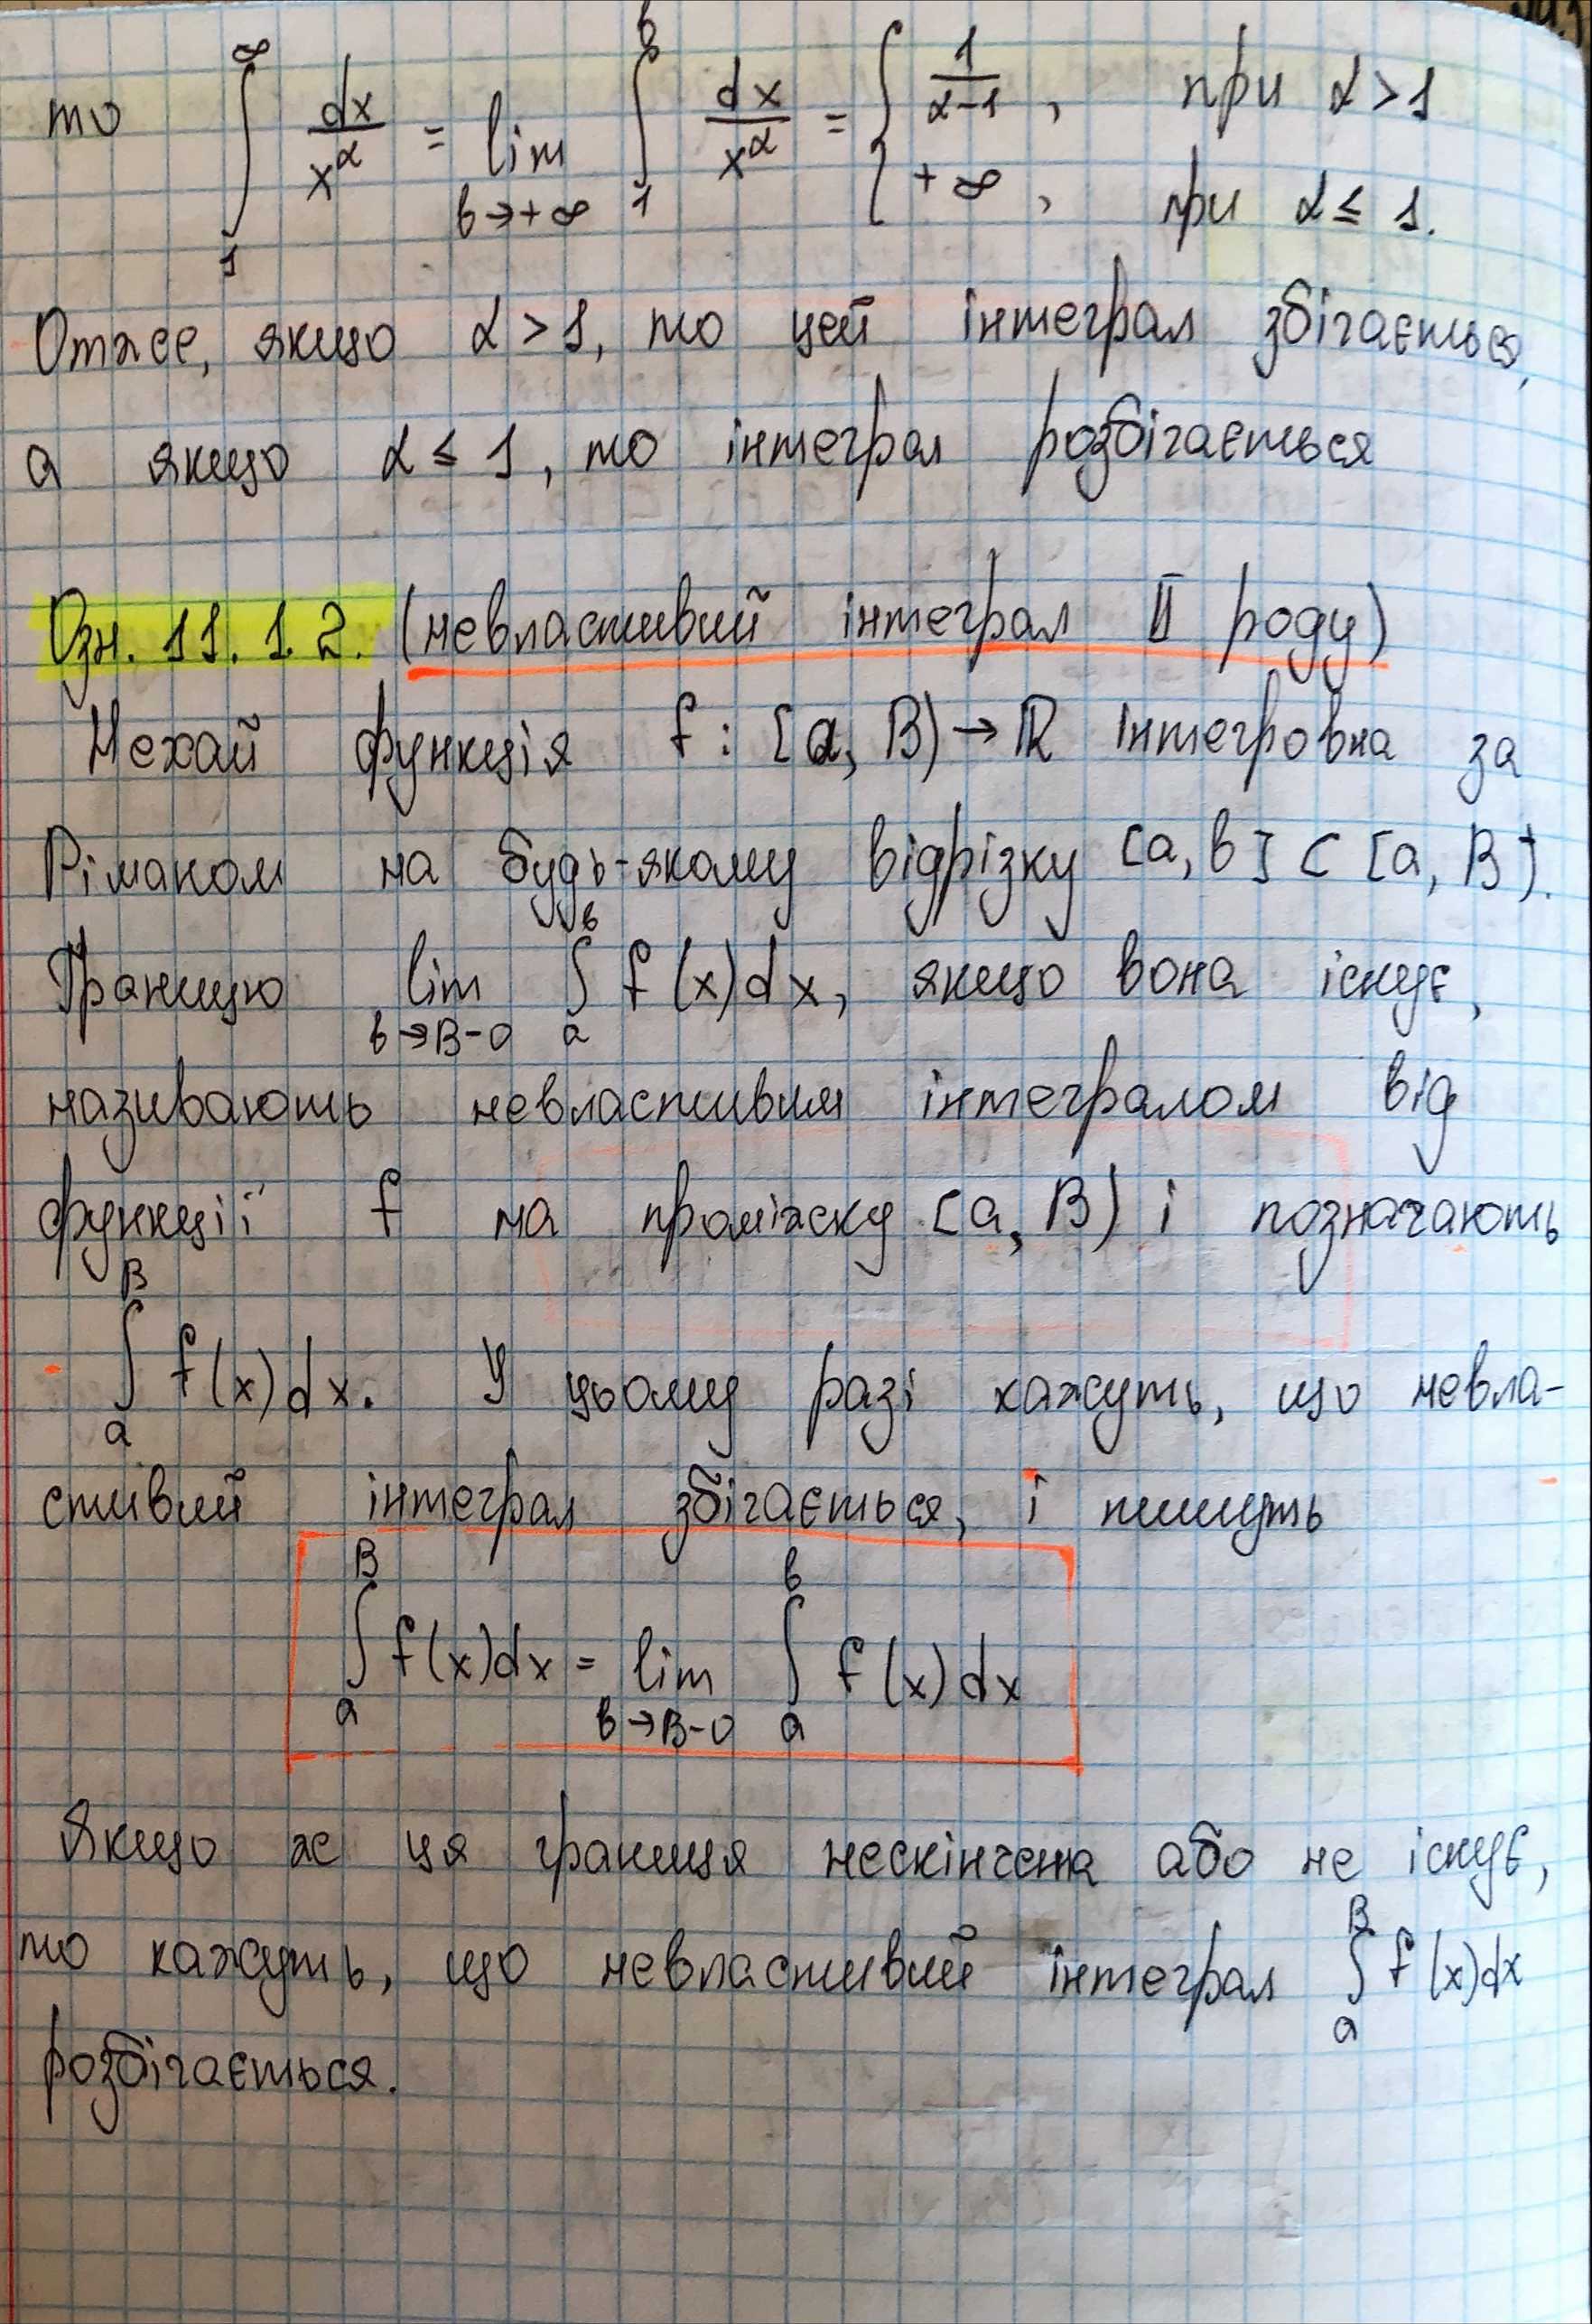 то ∫₁^∞ dx/x^α = lim_{b→+∞} ∫₁^b dx/x^α = { 1/(α-1), при α>1
+∞, при α≤1.
Отже, якщо α>1, то цей інтеграл збігається,
а якщо α≤1, то інтеграл розбігається
Озн. 11.1.2. (невластивий інтеграл II роду)
Нехай функція f: [a, B)→ℝ інтегровна за
Ріманом на будь-якому відрізку [a, b] ⊂ [a, B).
Границю lim_{b→B-0} ∫_a^b f(x)dx, якщо вона існує,
називають невластивим інтегралом від
функції f на проміжку [a, B) і позначають
∫_a^B f(x)dx. У цьому разі кажуть, що невла-
стивий інтеграл збігається, і пишуть
∫_a^B f(x)dx = lim_{b→B-0} ∫_a^b f(x)dx
Якщо ж ця границя нескінчена або не існує,
то кажуть, що невластивий інтеграл ∫_a^B f(x)dx
розбігається.